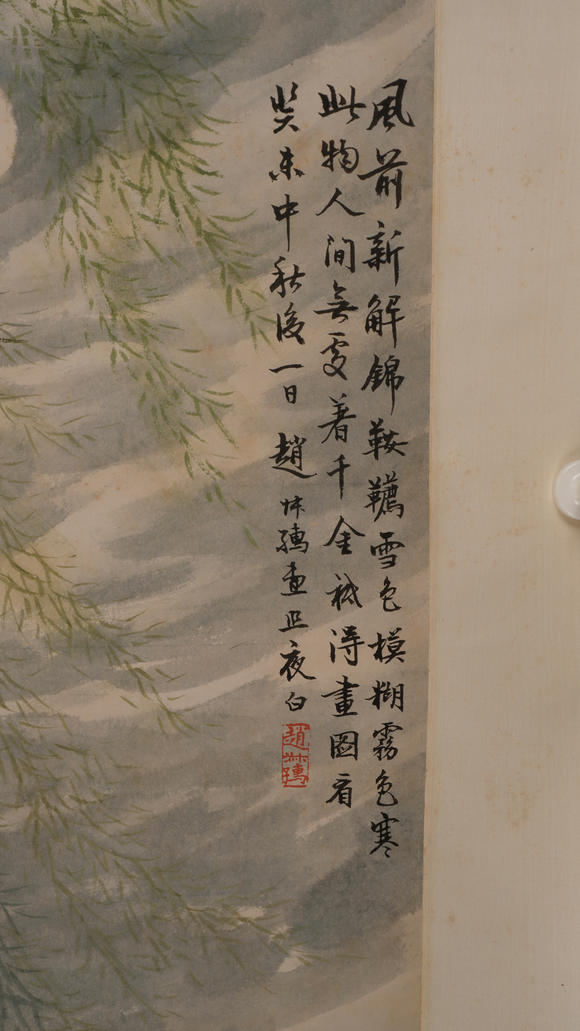 風前新解錦鞍韉雪色模糊霧色寒
此物人間無處著千金祗得畫圖看
癸未中秋後一日趙叔孺畫照夜白
趙叔孺